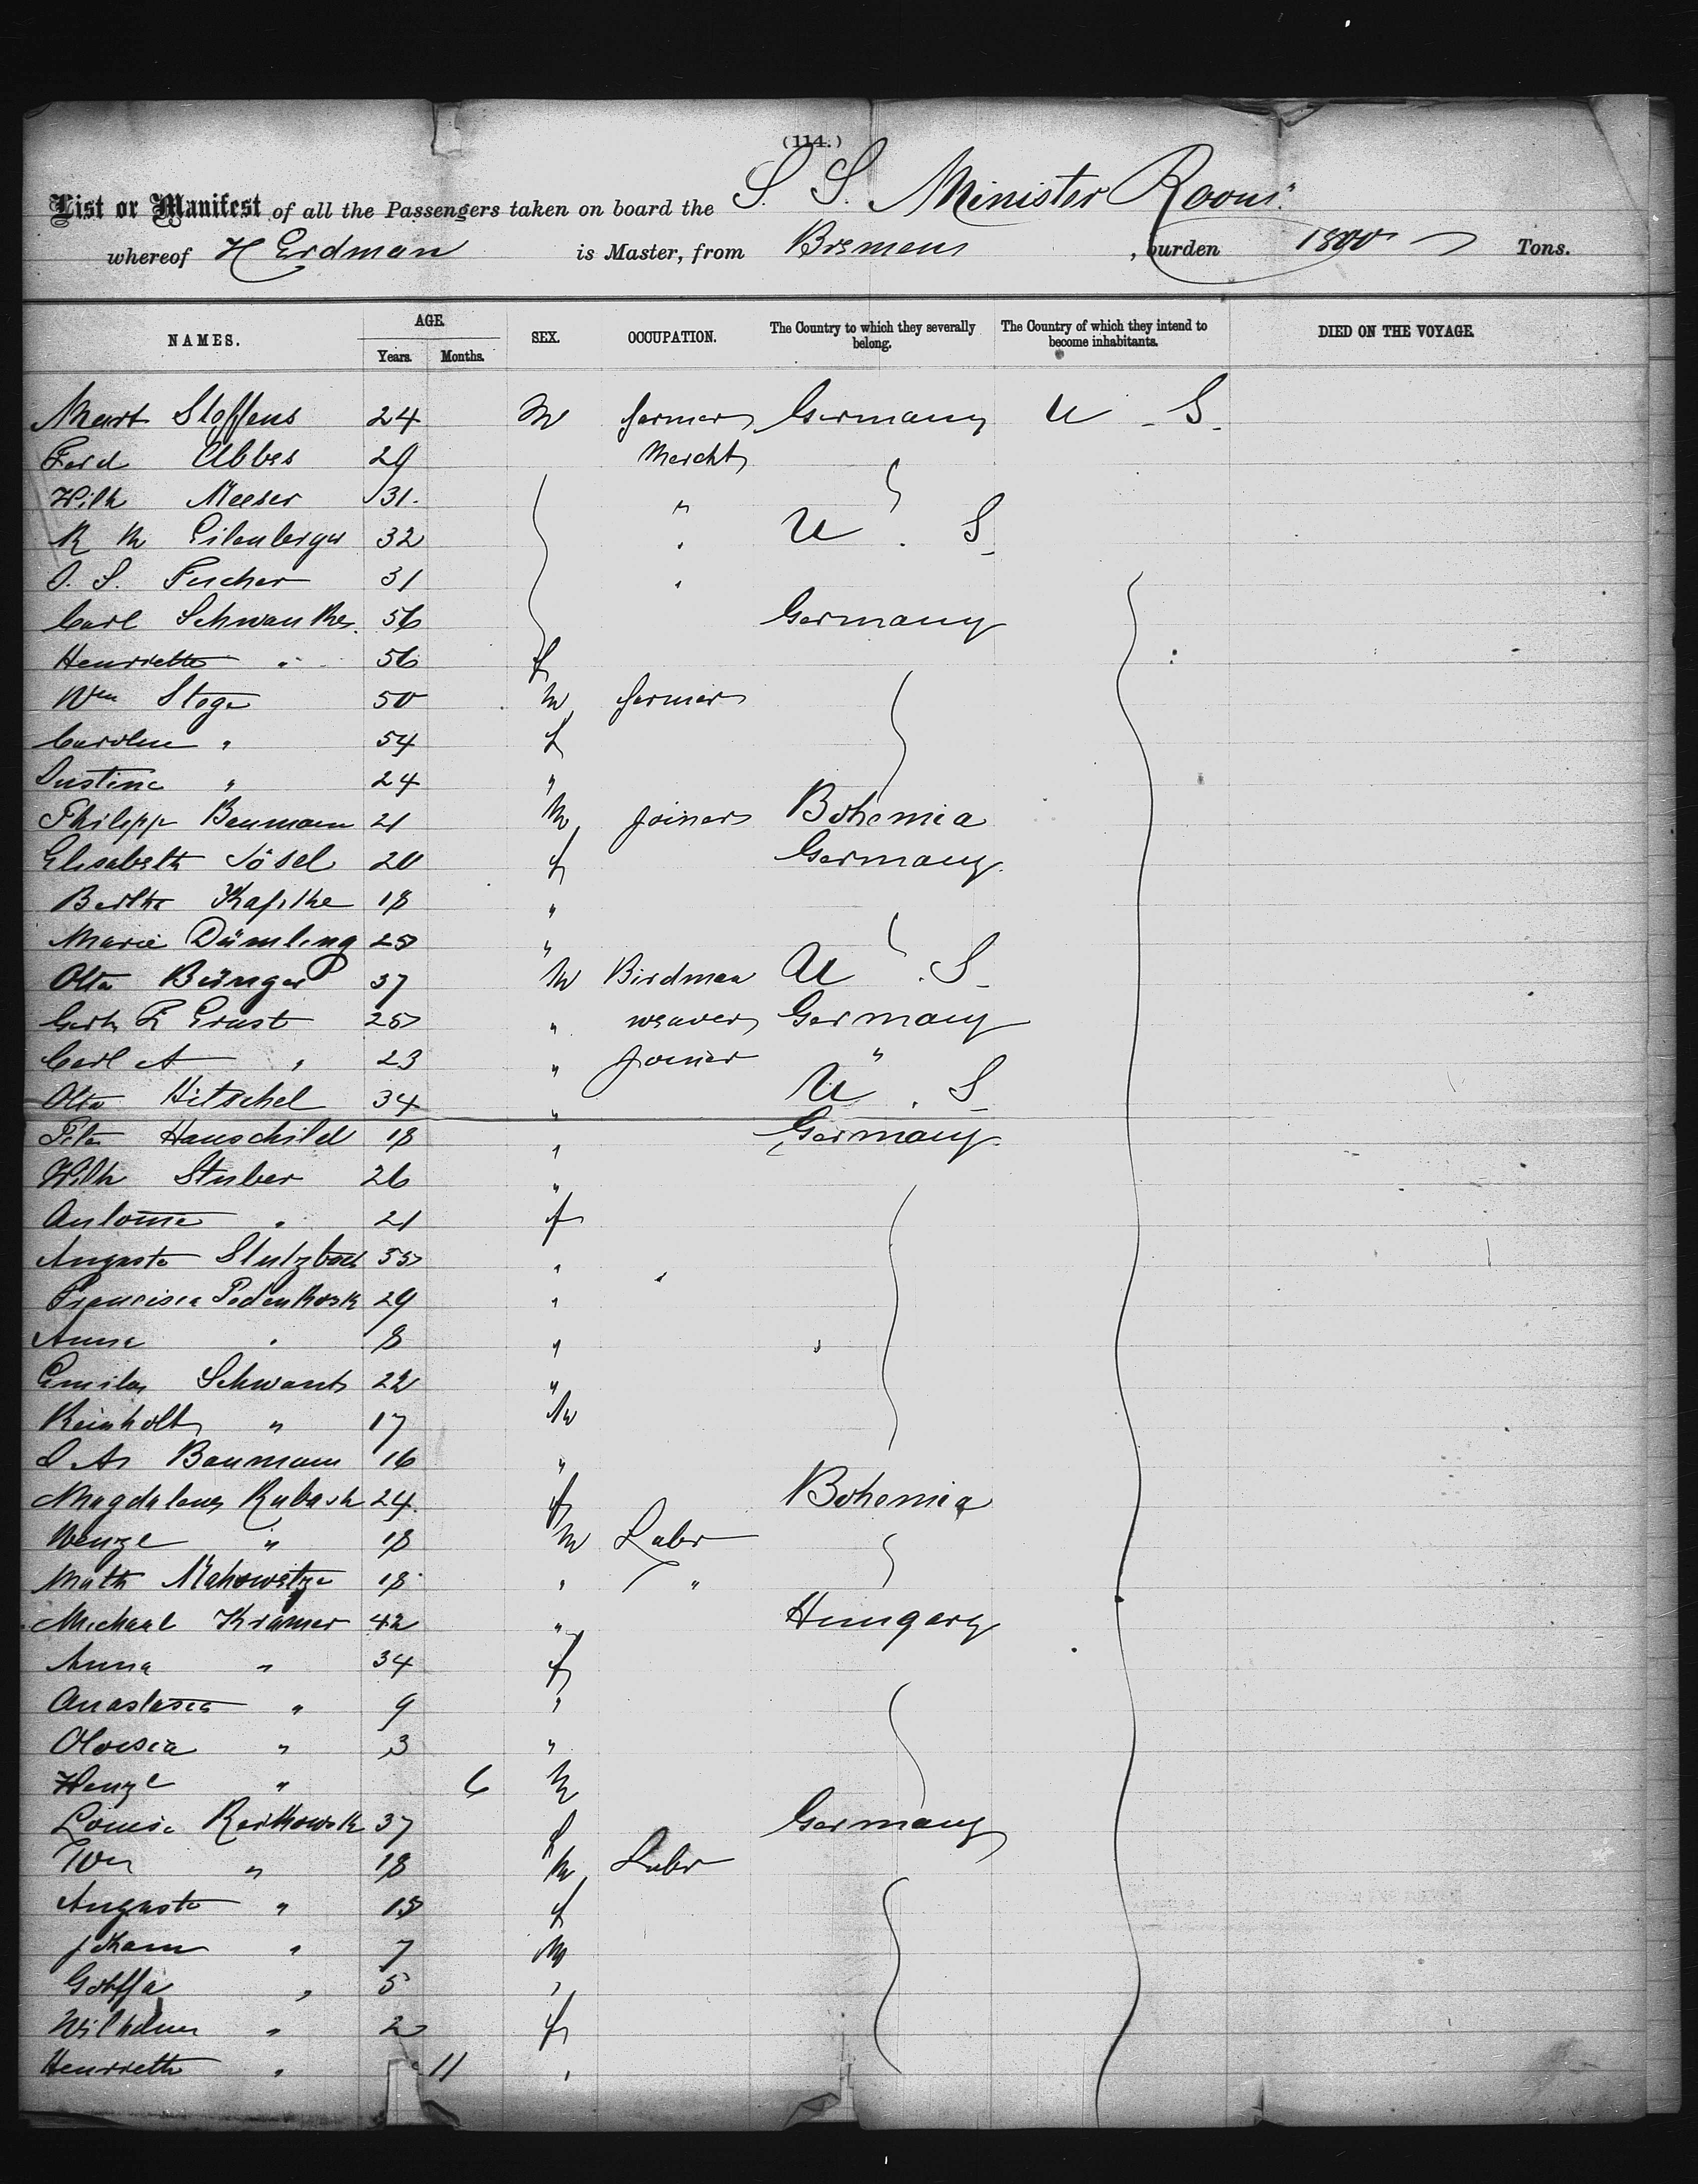 (114.)
List or Manifest of all the Passengers taken on board the S. S. Minister Roon
whereof H Erdman is Master, from Bremen , burden 1800 Tons.
NAMES. AGE. SEX. OCCUPATION. The Country to which they severally belong. The Country of which they intend to become inhabitants. DIED ON THE VOYAGE.
Years. Months.
Mart Stoffens 24 M farmer Germany U. S.
Ferd Abbes 29 Mercht
Wilh Meeser 31 "
R M Eilenberger 32 " U. S.
O. S. Fischer 31 "
Carl Schwanthes 56 Germany
Henriette " 56 f
Wm Stoge 50 M farmer
Carolin " 54 f
Justine " 24 "
Philipp Baumann 21 M Joiner Bohemia
Elisabeth Jösel 20 f Germany
Bertha Kafske 18 "
Marie Dümling 25 "
Otto Bünger 37 M Birdman U. S.
Gerh R Ernst 25 " weaver Germany
Carl A " 23 " Joiner "
Otto Hitschel 34 " U. S.
Peter Hauschild 18 " Germany
Wilh Stuber 26 "
Antonie " 21 f
Augusta Stutzbach 55 "
Francisca Podenkosk 29 "
Anna " 8 "
Emila Schwantz 22 "
Reinholt " 17 M
Baumann 16 "
Magdalena Rubash 24 f Bohemia
Wenzl " 18 M Labr
Math Mahowetze 18 " "
Michael Kramer 42 " Hungary
Anna " 34 f
Anastasia " 9 "
Oloisia " 3 "
Wenzl " 6 M
Louise Reikowsk 37 f Germany
Wm " 18 M Labr
Augusta " 15 f
Johann " 7 M
" 5 "
Wilhelm " 2 f
Henrieth " 11 "